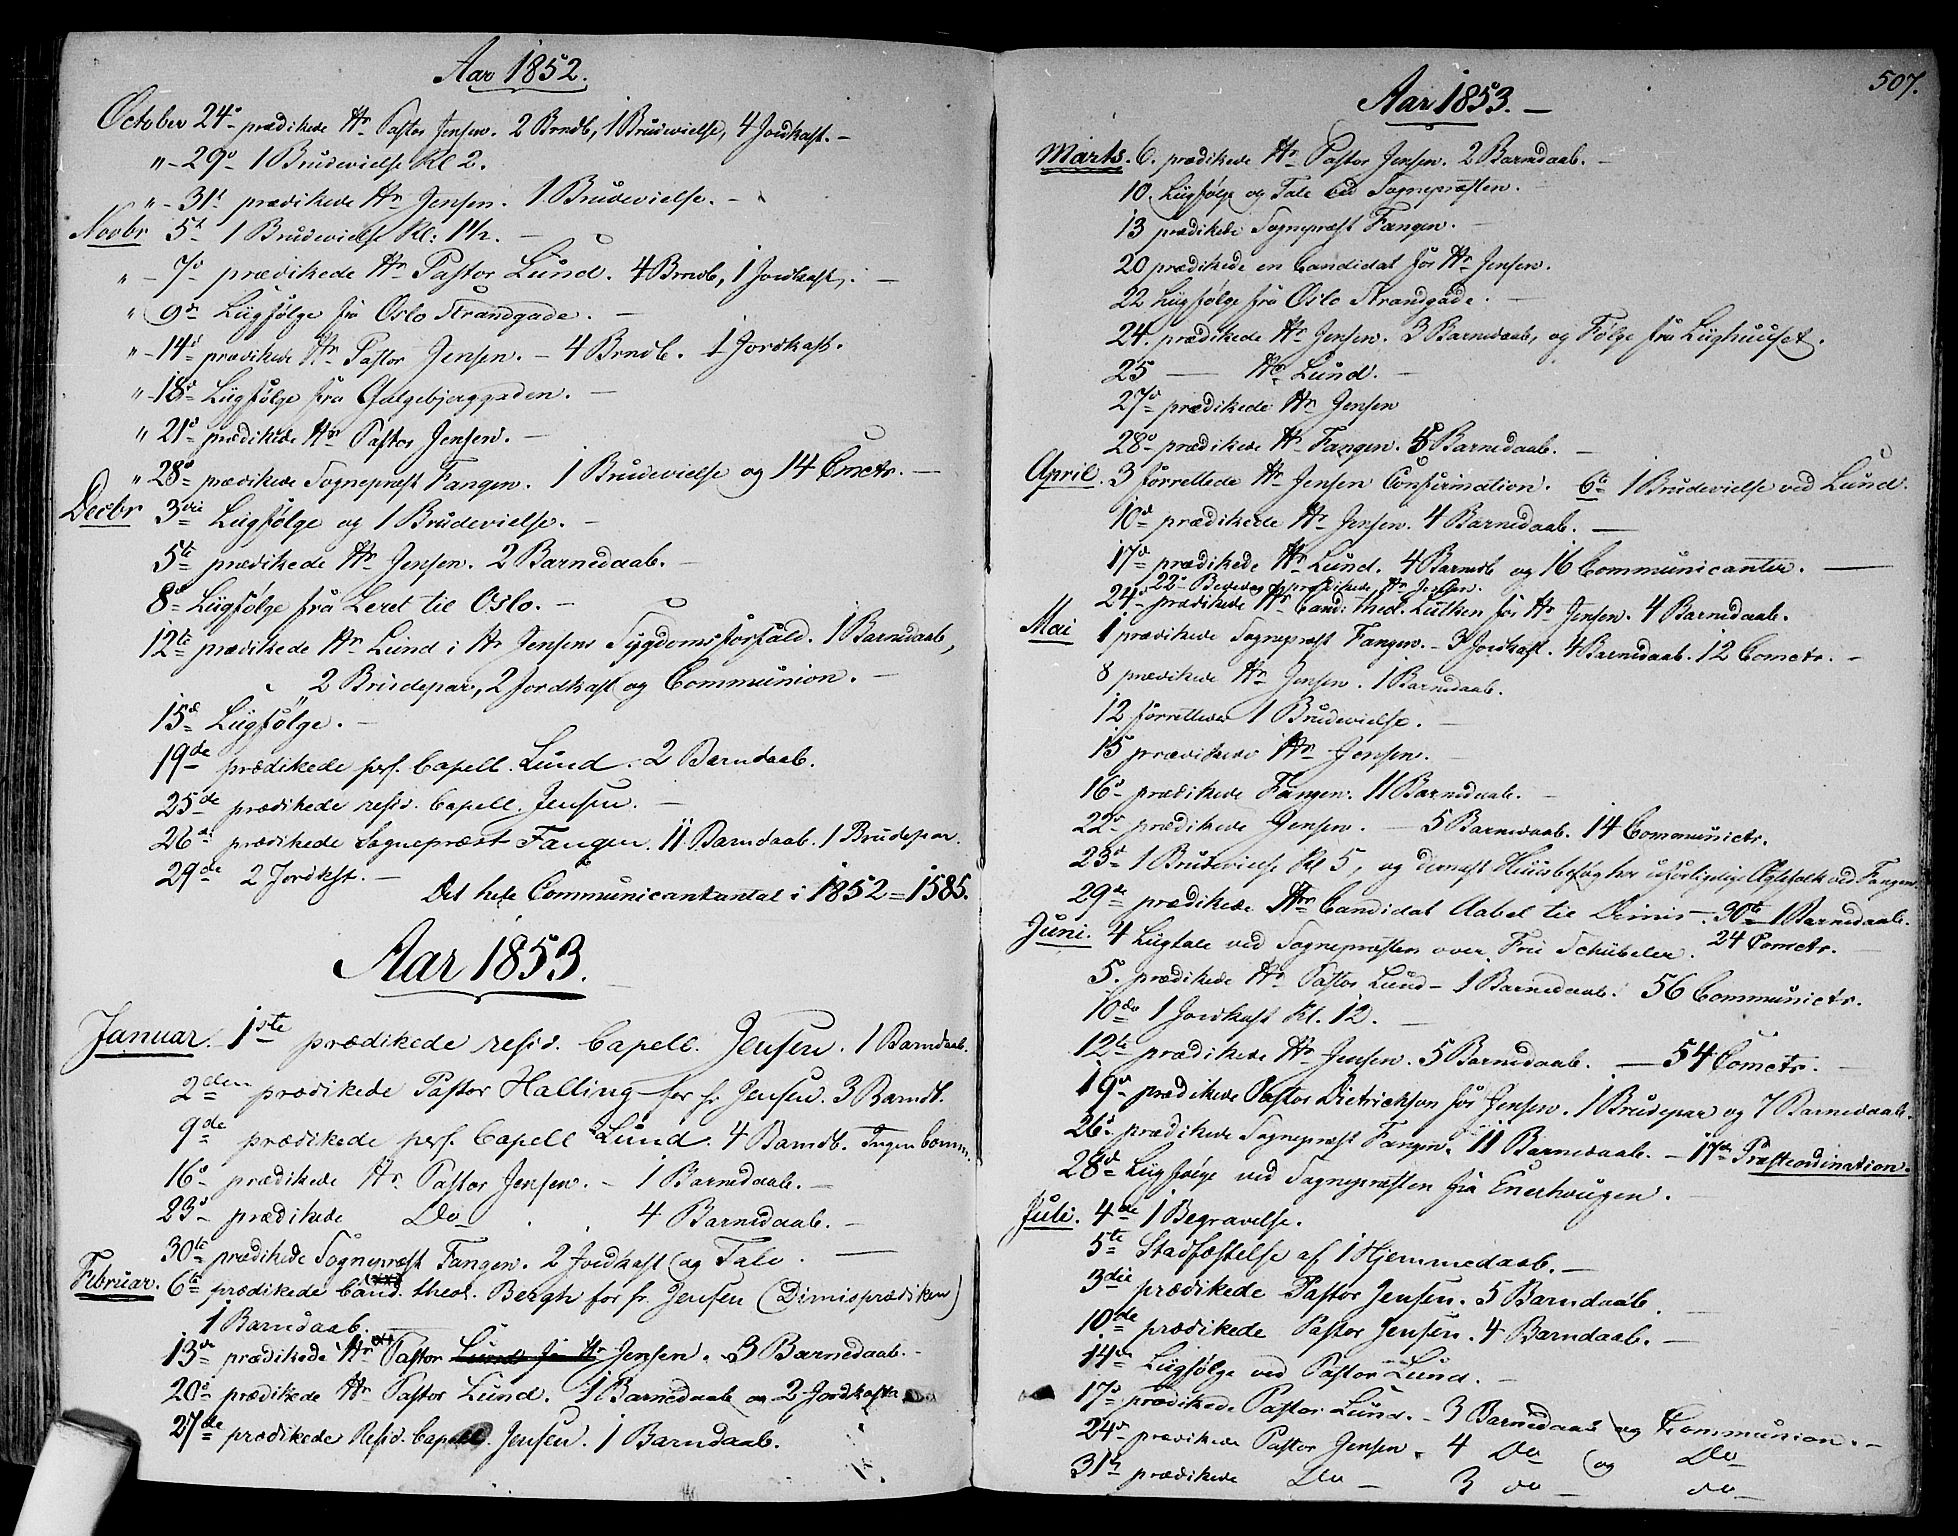 Aar 1852.
October 24de prædikede Hr Pastor Jensen. 2 Brndb, 1 Brudevielse, 4 Jordkast. –
" – 29de 1 Brudevielse Kl 2.
" – 31t prædikede Hr Jensen. 1 Brudevielse. –
Novbr 5t 1 Brudevielse Kl: 1½. –
" – 7de prædikede Hr Pastor Lund. 4 Brndb, 1 Jordkast. –
" 9de Liigfølge fra Oslo Strandgade. –
" – 14de prædikede Hr Pastor Jensen. – 4 Brndb. 1 Jordkast.
" – 18de Liigfølge fra Galgebjerggaden. –
" 21de prædikede Hr Pastor Jensen. –
" 28de prædikede Sognepræst Fangen. 1 Brudevielse og 14 Cmctr. –
Decbr 3die Liigfølge og 1 Brudevielse. –
5te prædikede Hr Jensen. 2 Barnedaab. –
8de Liigfølge fra Leret til Oslo. –
12te prædikede Hr Lund i Hr Jensens Sygdomsforfald. 1 Barnedaab,
" 2 Brudepar, 2 Jordkast og Communion. –
15de Liigfølge. –
19de prædikede pers. Capell. Lund. 2 Barndaab.
25de prædikede resid. Capell. Jensen. –
26de prædikede Sognepræst Fangen. 11 Barndaab. 1 Brudepar.
29de 2 Jordkst. –
Det hele Communicantantal i 1852 = 1585.
Aar 1853.
Januar. 1ste prædikede resid. Capell. Jensen. 1 Barndaab.
2den prædikede Pastor Halling for hr Jensen. 3 Barndb.
9de prædikede pers. Capell Lund. 4 Barndb. Ingen Comm.
16de prædikede Hr Pastor Jensen. – 1 Barnedaab. –
23de prædikede Do 4 Barnedaab. –
30te prædikede Sognepræst Fangen. 2 Jordkast og Tale. –
Februar. 6te prædikede Cand. theol. Bergh for hr Jensen (Dimisprædiken)
1 Barndaab.
13de prædikede Hr Pastor Lund for Hr Jensen. 3 Barnedaab. –
20de prædikede Hr Pastor Lund. 1 Barnedaab og 2 Jordkasta
27de prædikede Resid. Capell. Jensen. 1 Barndaab.
507.
Aar 1853. –
Marts. 6. prædikede Hr Pastor Jensen. 2 Barndaab. –
10. Liigfølge og Tale ved Sognepræsten. –
13 prædikede Sognepræst Fangen. –
20 prædikede en Candidat for Hr Jensen.
22 Liigfølge fra Oslo Strandgade. –
24. prædikede Hr Jensen. 3 Barnedaab, og Følge fra Liighuuset.
25 — Hr Lund. –
27de prædikede Hr Jensen
28de prædikede Hr Fangen. 5 Barnedaab. –
April. 3 forrettede Hr Jensen Confirmation. 6te 1 Brudevielse ved Lund.
10de prædikede Hr Jensen. 4 Barnedaab. –
17de prædikede Hr Lund. 4 Barnedb og 16 Communicanter. —
22de Bededag prædikede Hr Jensen.
24de prædikede Hr Cand. theol. Lütken for Hr Jensen. 4 Barnedaab.
Mai 1 prædikede Sognepræst Fangen. – 3 Jordkast. 4 Barnedaab. 12 Comctr. –
8 prædikede Hr Jensen. 1 Barnedaab.
12 forrettedes 1 Brudevielse. –
15 prædikede Hr Jensen.
16de prædikede Fangen. 11 Barnedaab. –
22de prædikede Jensen. – 5 Barnedaab. 14 Communictr.
23de 1 Brudevielse Kl 5, og dernæst Huusbesøg hos uforligelige Ægtefolk ved Fangen.
29de prædikede Hr Candidat Aabel til Dimis –. 30te 1 Barnedaab.
Juni. 4 Liigtale ved Sognepræsten over Fru Schübeler. 24 Comctr.
5. prædikede Hr Pastor Lund – 1 Barnedaab. 56 Communictr.
10de 1 Jordkast Kl. 12. –
12te prædikede Hr Jensen. 5 Barnedaab. — 54 Comctr. –
19de prædikede Pastor Dietrichson for Jensen. 1 Brudepar og 7 Barnedaab.
26de prædikede Sognepræst Fangen. 11 Barnedaab. – 17de Præsteordination.
28de Liigfølge ved Sognepræsten fra Enerhougen. –
Juli. 4de 1 Begravelse.
5te Stadfæstelse af 1 Hjemmedaab. –
3die prædikede Pastor Jensen. 5 Barndaab. –
10de prædikede Pastor Jensen. 4 Barndaab. –
14de Liigfølge ved Pastor Lund. –
17de prædikede Pastor Lund. – 3 Barnedaab og Communion. –
24de prædikede Pastor Jensen. 4 Do og Do
31te prædikede Do – 3 do – do –